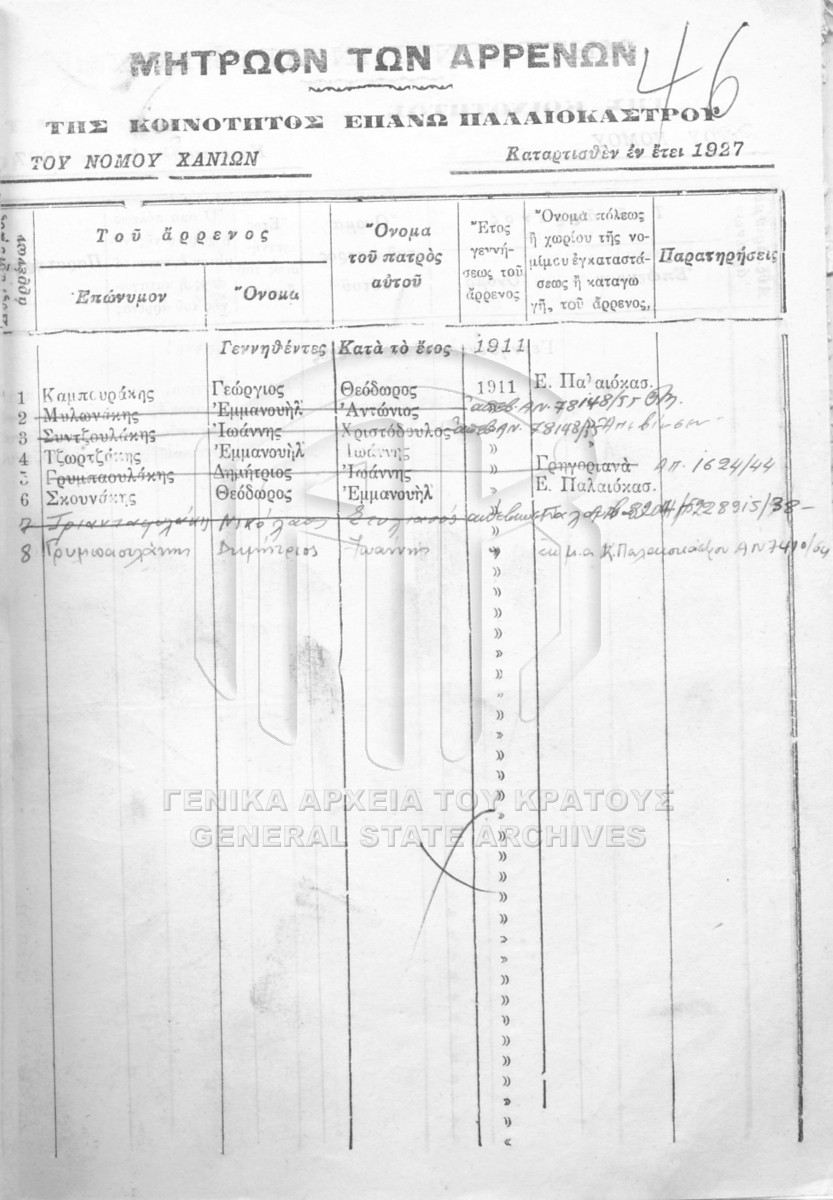 ΜΗΤΡΩΟΝ ΤΩΝ ΑΡΡΕΝΩΝ
46
ΤΗΣ ΚΟΙΝΟΤΗΤΟΣ ΕΠΑΝΩ ΠΑΛΑΙΟΚΑΣΤΡΟΥ
ΤΟΥ ΝΟΜΟΥ ΧΑΝΙΩΝ
Καταρτισθὲν ἐν ἔτει 1927
Τοῦ ἄρρενος
Ἐπώνυμον
Ὄνομα
Ὄνομα
τοῦ πατρὸς
αὐτοῦ
Ἔτος
γεννή-
σεως τοῦ
ἄρρενος
Ὄνομα πόλεως
ἢ χωρίου τῆς νο-
μίμου ἐγκαταστά-
σεως ἢ καταγω
γῆς, τοῦ ἄρρενος,
Παρατηρήσεις
Γεννηθέντες Κατὰ τὸ ἔτος 1911
1 Καμπουράκης Γεώργιος Θεόδωρος 1911 Ε. Παλαιόκασ.
2 Μυλωνάκης Ἐμμανουὴλ Ἀντώνιος ἀπεβ. ΑΝ. 78148/55
3 Συντζουλάκης Ἰωάννης Χριστόδουλος ΑΝ. 78148/55 Ἀπεβίωσεν
4 Τζωρτζάκης Ἐμμανουὴλ Ἰωάννης » »
5 Γρυμπαουλάκης Δημήτριος Ἰωάννης » Γρηγοριανὰ Απ. 1624/44
6 Σκουνάκης Θεόδωρος Ἐμμανουὴλ » Ε. Παλαιόκασ.
7 Τριανταφυλάκης Νικόλαος Στυλιανός
8 Γρυμπαουλάκης Δημήτριος Ἰωάννης » Κ. Παλαιοκάστρου ΑΝ 7410/54
ΓΕΝΙΚΑ ΑΡΧΕΙΑ ΤΟΥ ΚΡΑΤΟΥΣ
GENERAL STATE ARCHIVES